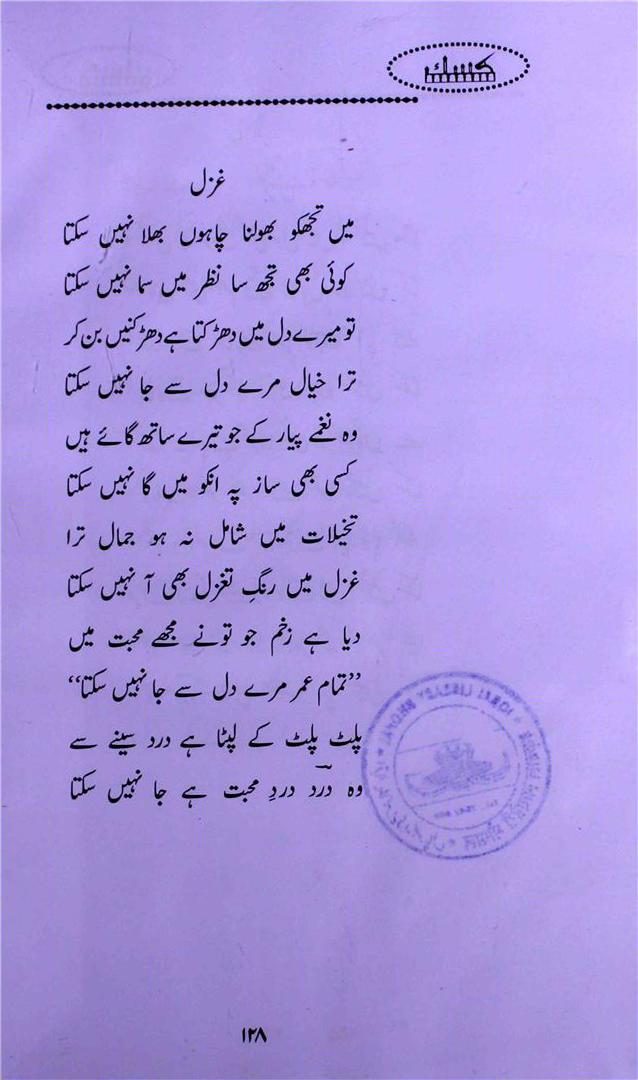 کسک
غزل
میں تجھکو بھولنا چاہوں بھلا نہیں سکتا
کوئی بھی تجھ سا نظر میں سما نہیں سکتا
تو میرے دل میں دھڑکتا ہے دھڑکنیں بن کر
ترا خیال مرے دل سے جا نہیں سکتا
وہ نغمے پیار کے جو تیرے ساتھ گائے ہیں
کسی بھی ساز پہ انکو میں گا نہیں سکتا
تخیلات میں شامل نہ ہو جمال ترا
غزل میں رنگِ تغزل بھی آ نہیں سکتا
دیا ہے زخم جو تونے مجھے محبت میں
’’تمام عمر مرے دل سے جا نہیں سکتا‘‘
پلٹ پلٹ کے لپٹا ہے درد سینے سے
وہ درد دردِ محبت ہے جا نہیں سکتا
۱۲۸